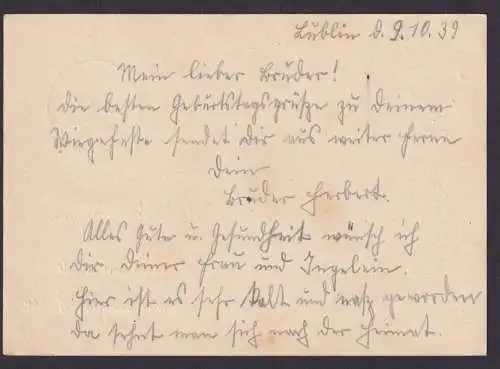 Lublin d. 9.10.39
Mein lieber Brüder!
Die besten Geburtstagsgrüsze zu Deinem
Wiegefeste sendet Dir aus weiter Ferne
Dein
Brüder Herbert.
Alles Gute u. Gesundheit wünsch ich
Dir, Deiner Frau und Ingelein.
Hier ist es sehr kalt und nasz geworden
da sehnt man sich nach der Heimat.